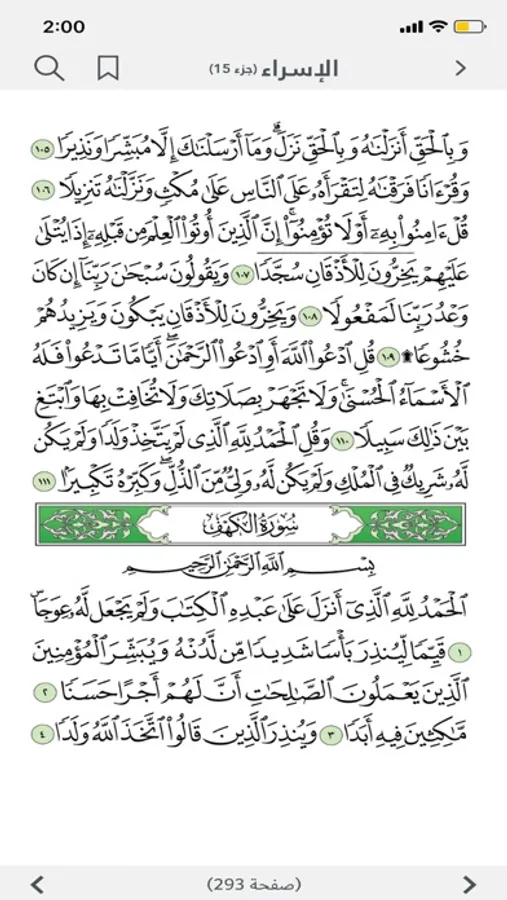 2:00
الإسراء (جزء 15)
وَبِٱلْحَقِّ أَنزَلْنَٰهُ وَبِٱلْحَقِّ نَزَلَ ۗ وَمَآ أَرْسَلْنَٰكَ إِلَّا مُبَشِّرًا وَنَذِيرًا ١٠٥
وَقُرْءَانًا فَرَقْنَٰهُ لِتَقْرَأَهُۥ عَلَى ٱلنَّاسِ عَلَىٰ مُكْثٍ وَنَزَّلْنَٰهُ تَنزِيلًا ١٠٦
قُلْ ءَامِنُوا۟ بِهِۦٓ أَوْ لَا تُؤْمِنُوٓا۟ ۚ إِنَّ ٱلَّذِينَ أُوتُوا۟ ٱلْعِلْمَ مِن قَبْلِهِۦٓ إِذَا يُتْلَىٰ
عَلَيْهِمْ يَخِرُّونَ لِلْأَذْقَانِ سُجَّدًا ١٠٧ وَيَقُولُونَ سُبْحَٰنَ رَبِّنَآ إِن كَانَ
وَعْدُ رَبِّنَا لَمَفْعُولًا ١٠٨ وَيَخِرُّونَ لِلْأَذْقَانِ يَبْكُونَ وَيَزِيدُهُمْ
خُشُوعًا ۩ ١٠٩ قُلِ ٱدْعُوا۟ ٱللَّهَ أَوِ ٱدْعُوا۟ ٱلرَّحْمَٰنَ ۖ أَيًّا مَّا تَدْعُوا۟ فَلَهُ
ٱلْأَسْمَآءُ ٱلْحُسْنَىٰ ۚ وَلَا تَجْهَرْ بِصَلَاتِكَ وَلَا تُخَافِتْ بِهَا وَٱبْتَغِ
بَيْنَ ذَٰلِكَ سَبِيلًا ١١٠ وَقُلِ ٱلْحَمْدُ لِلَّهِ ٱلَّذِى لَمْ يَتَّخِذْ وَلَدًا وَلَمْ يَكُن
لَّهُۥ شَرِيكٌ فِى ٱلْمُلْكِ وَلَمْ يَكُن لَّهُۥ وَلِىٌّ مِّنَ ٱلذُّلِّ ۖ وَكَبِّرْهُ تَكْبِيرًۢا ١١١
سُورَةُ ٱلْكَهْفِ
بِسْمِ ٱللَّهِ ٱلرَّحْمَٰنِ ٱلرَّحِيمِ
ٱلْحَمْدُ لِلَّهِ ٱلَّذِىٓ أَنزَلَ عَلَىٰ عَبْدِهِ ٱلْكِتَٰبَ وَلَمْ يَجْعَل لَّهُۥ عِوَجَا ۜ
١ قَيِّمًا لِّيُنذِرَ بَأْسًا شَدِيدًا مِّن لَّدُنْهُ وَيُبَشِّرَ ٱلْمُؤْمِنِينَ
ٱلَّذِينَ يَعْمَلُونَ ٱلصَّٰلِحَٰتِ أَنَّ لَهُمْ أَجْرًا حَسَنًا ٢
مَّٰكِثِينَ فِيهِ أَبَدًا ٣ وَيُنذِرَ ٱلَّذِينَ قَالُوا۟ ٱتَّخَذَ ٱللَّهُ وَلَدًا ٤
(صفحة 293)